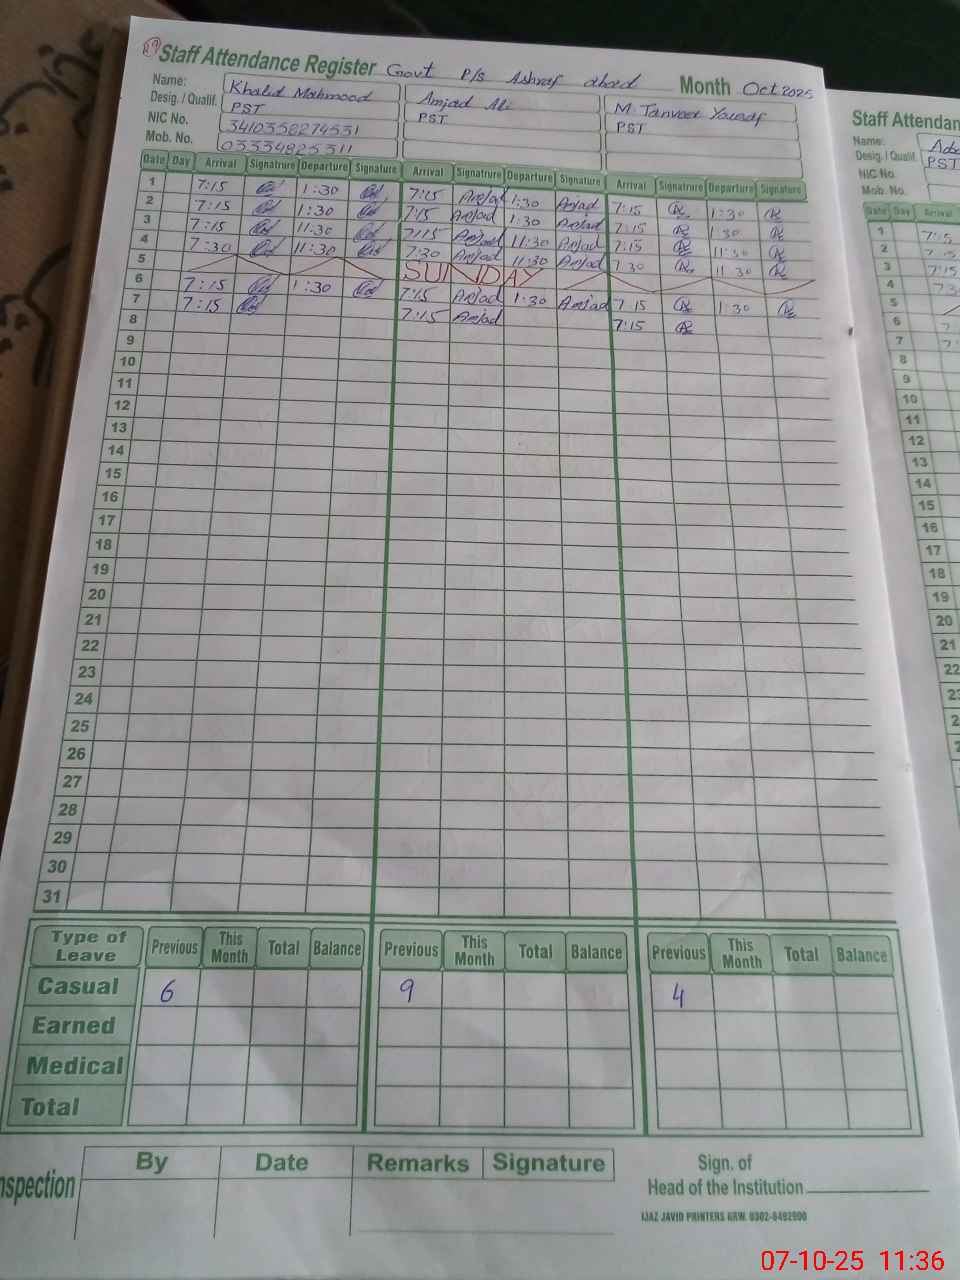 Staff Attendance Register Govt P/S Ashraf abad Month Oct 2025
Name: Khalid Mahmood Amjad Ali M. Tanveer Yousaf
Desig. / Qualif. PST PST PST
NIC No.
Mob. No. 03334825311
Date Day Arrival Signatrure Departure Signature Arrival Signatrure Departure Signature Arrival Signatrure Departure Signature
1 7:15 1:30 7:15 Amjad 1:30 Amjad 7:15 1:30
2 7:15 1:30 7:15 Amjad 1:30 Amjad 7:15 1:30
3 7:15 11:30 7:15 Amjad 11:30 Amjad 7:15 11:30
4 7:30 11:30 7:30 Amjad 11:30 Amjad 7:30 11:30
5 SUNDAY
6 7:15 1:30 7:15 Amjad 1:30 Amjad 7:15 1:30
7 7:15 7:15 Amjad 7:15
8
9
10
11
12
13
14
15
16
17
18
19
20
21
22
23
24
25
26
27
28
29
30
31
Type of Leave Previous This Month Total Balance Previous This Month Total Balance Previous This Month Total Balance
Casual 6 9 4
Earned
Medical
Total
nspection By Date Remarks Signature
Sign. of
Head of the Institution
IJAZ JAVID PRINTERS GRW. 0302-6492900
Staff Attendan
Name:
Desig. / Qualif. PST
NIC No.
Mob. No.
Date Day Arrival
1 7:15
2 7:15
3 7:15
4
5
6
7
8
9
10
11
12
13
14
15
16
17
18
19
20
21
22
07-10-25 11:36